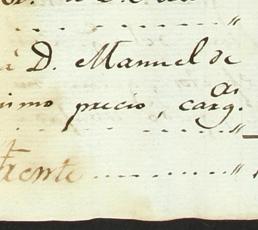 á D. Manuel de
nimo precio, carg.
frente